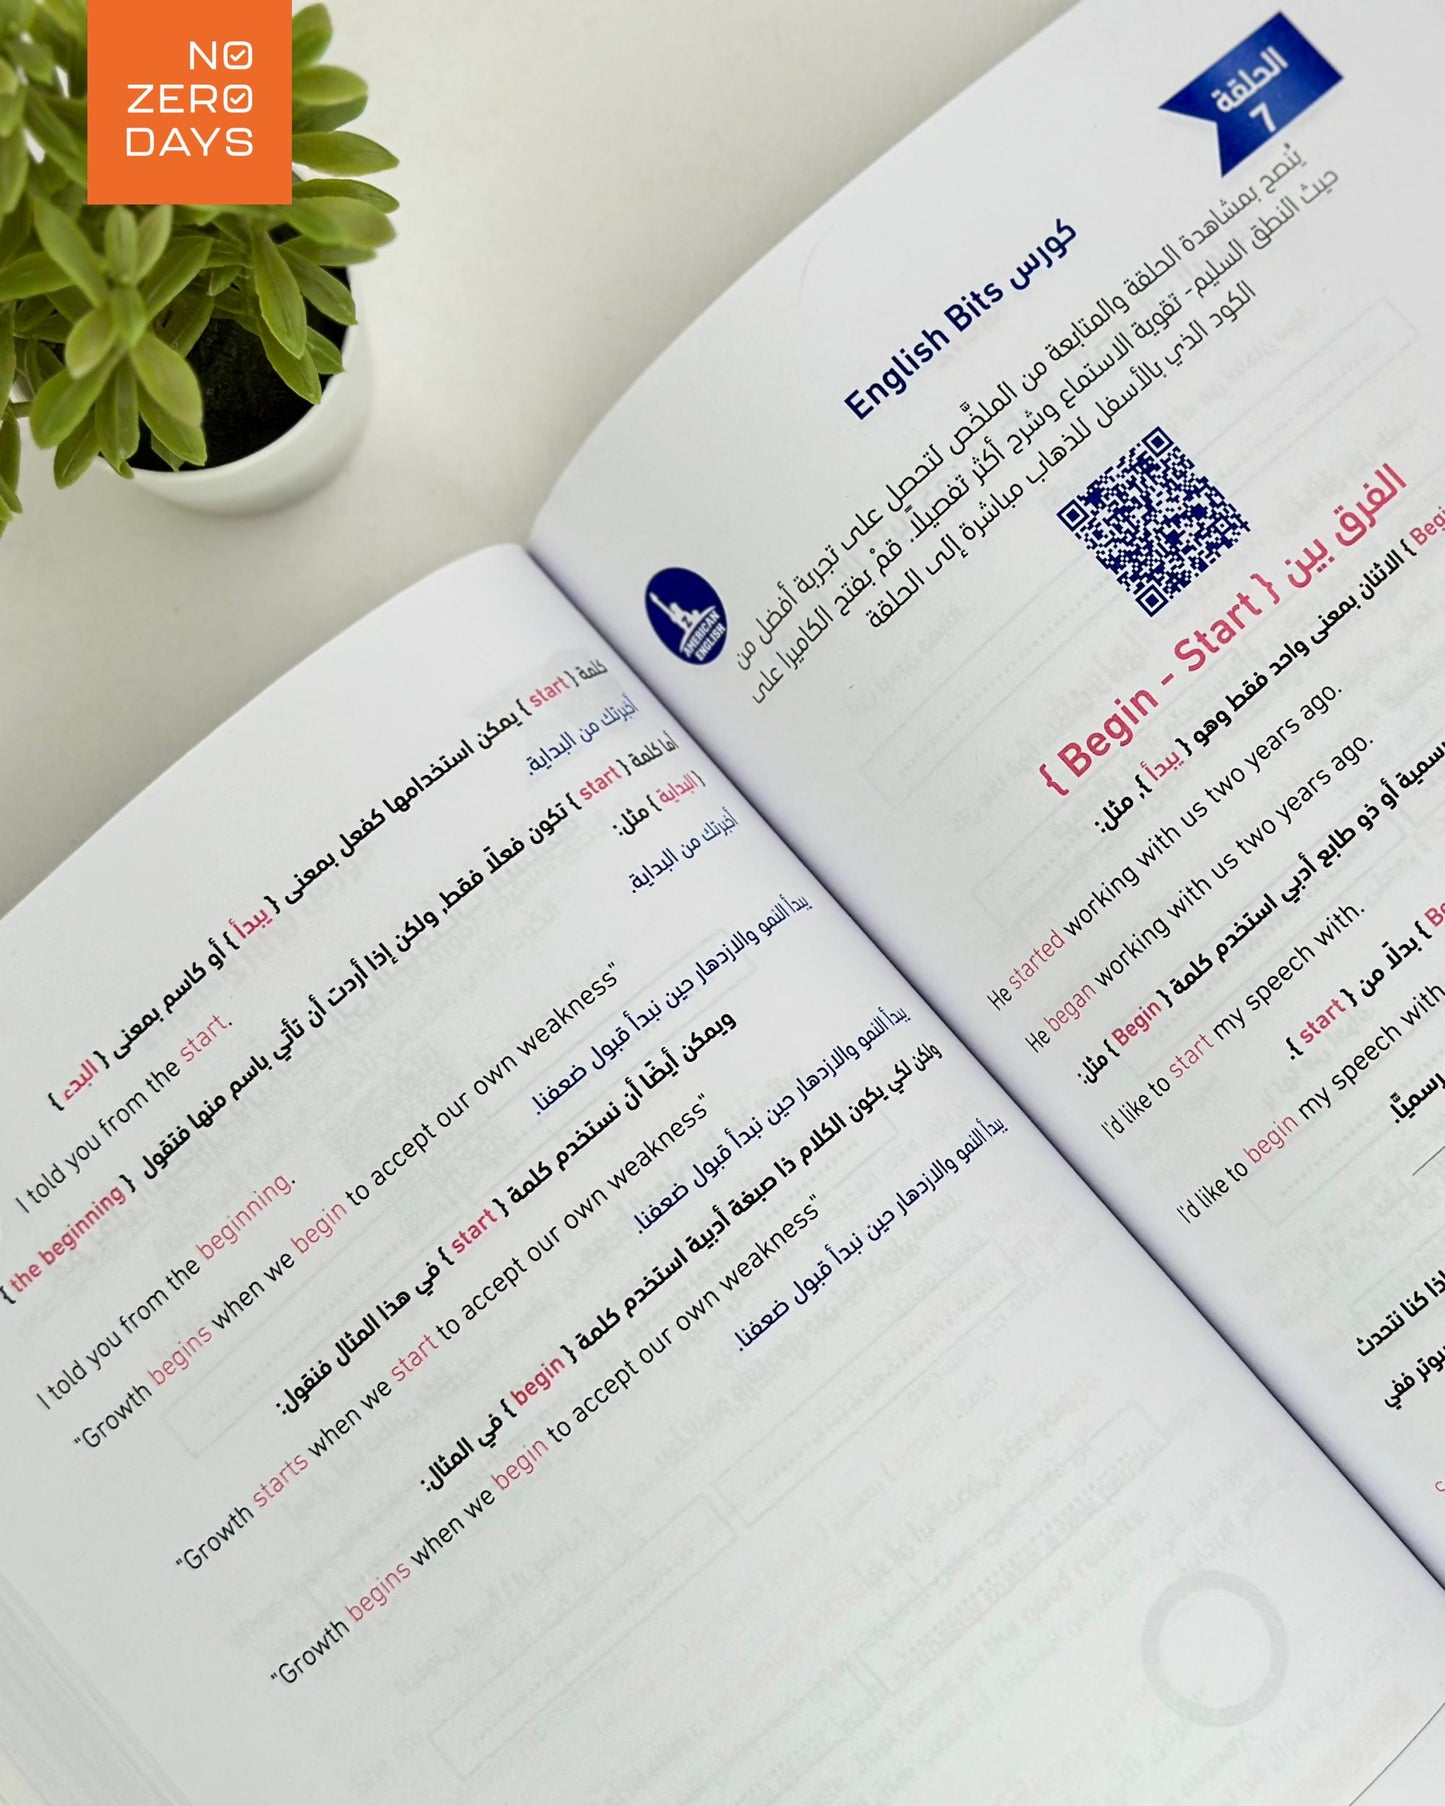 NO
ZERO
DAYS
الحلقة
7
كورس English Bits
يُنصح بمشاهدة الحلقة والمتابعة من الملخَّص لتحصل على تجربة أفضل من
حيث النطق السليم- تقوية الاستماع وشرح أكثر تفصيلًا. قمْ بفتح الكاميرا على
الكود الذي بالأسفل للذهاب مباشرة إلى الحلقة
AMERICAN
ENGLISH
الفرق بين { Begin - Start }
} الاثنان بمعنى واحد فقط وهو { يبدأ }, مثل:
He started working with us two years ago.
He began working with us two years ago.
أو ذو طابع أدبي استخدم كلمة { Begin } مثل:
I'd like to start my speech with.
} بدلًا من { start }.
I'd like to begin my speech with
رسميًّا.
إذا كنا نتحدث
ففي
كلمة { start } يمكن استخدامها كفعل بمعنى { يبدأ } أو كاسم بمعنى { البدء }
I told you from the start.
أخبرتك من البداية.
أما كلمة { start } تكون فعلًا فقط, ولكن إذا أردت أن تأتي باسم منها فتقول { the beginning }
{ البداية } مثل:
I told you from the beginning.
أخبرتك من البداية.
"Growth begins when we begin to accept our own weakness"
يبدأ النمو والازدهار حين نبدأ قبول ضعفنا.
ويمكن أيضًا أن نستخدم كلمة { start } في هذا المثال فنقول:
"Growth starts when we start to accept our own weakness"
يبدأ النمو والازدهار حين نبدأ قبول ضعفنا.
ولكن لكي يكون الكلام ذا صبغة أدبية استخدم كلمة { begin } في المثال:
"Growth begins when we begin to accept our own weakness"
يبدأ النمو والازدهار حين نبدأ قبول ضعفنا.